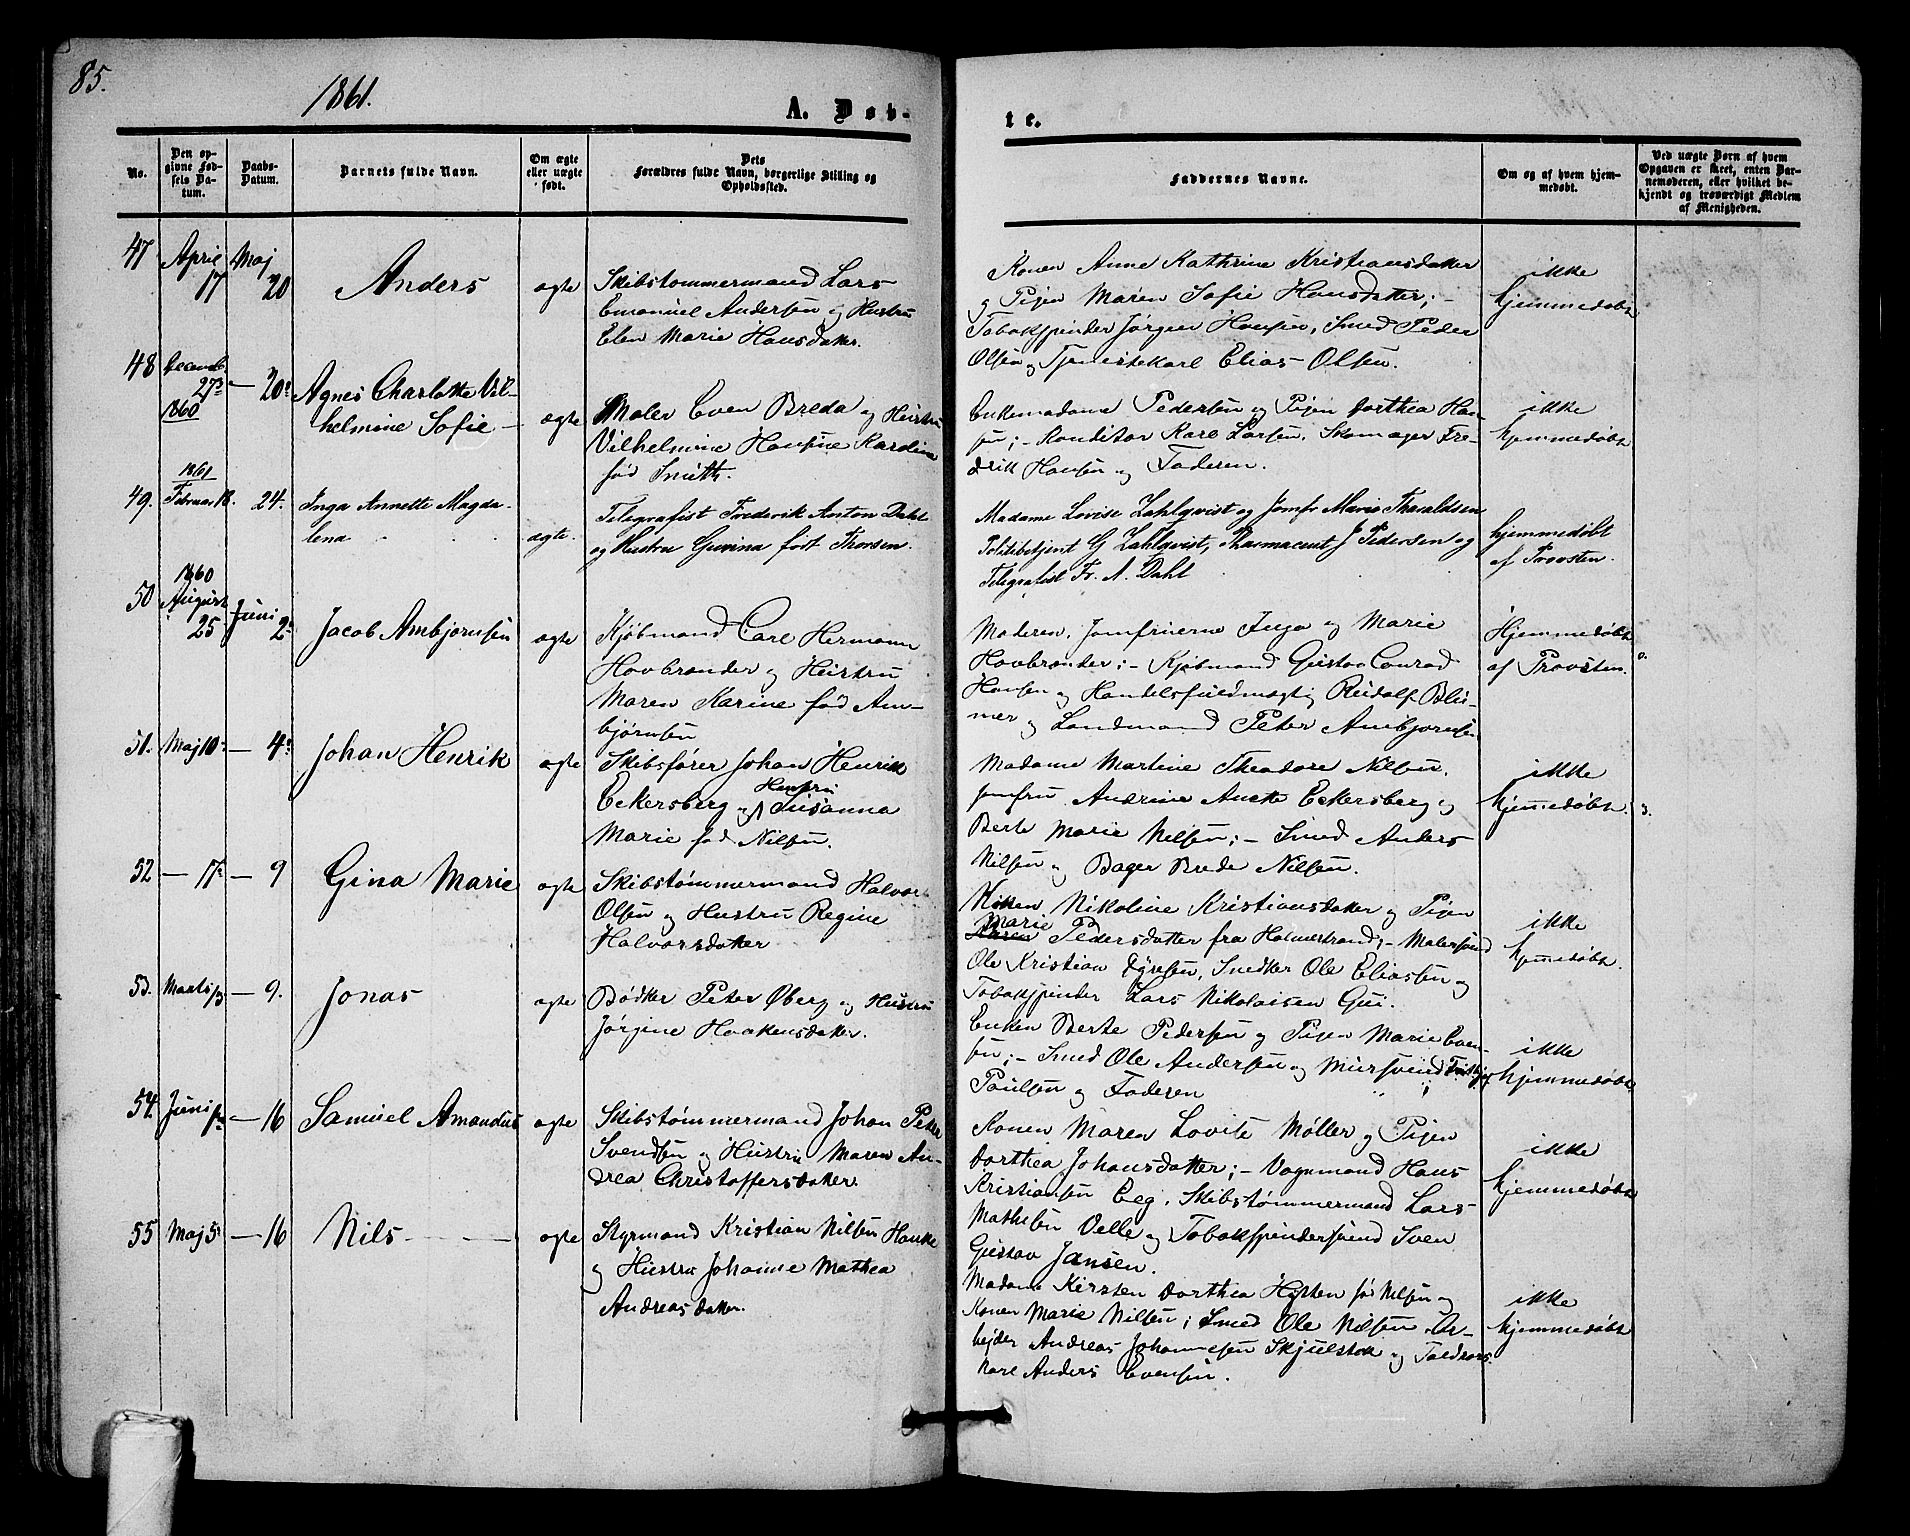 85.
1861.
A. Døb-
te.
No.
Den op-
givne Fød-
sels Da-
tum.
Daabs-
Datum.
Barnets fulde Navn.
Om ægte
eller uægte
født.
Dets
Forældres fulde Navn, borgerlige Stilling og
Opholdssted.
Faddernes Navne.
Om og af hvem hjem-
medøbt.
Ved uægte Børn af hvem
Opgaven er skeet, enten Bar-
nemoderen, eller hvilket be-
kjendt og troværdigt Medlem
af Menigheden.
47
April
17
Maj
20
Anders
ægte
Skibstømmermand Lars
Emanuel Andersen og Hustru
Elen Marie Hansdatter.
Konen Anne Kathrine Kristiansdatter
og Pigen Maren Sofie Hansdatter; -
Tobakspinder Jørgen Hansen, Smed Peder
Olsen og Tjenestekarl Elias Olsen.
ikke
hjemmedøbt
48
Decemb.
27
1860
— 20
Agnes Charlotte Vil-
helmine Sofie —
ægte
Maler Even Breda og Hustru
Vilhelmine Hansine Kardine
fød Smith.
Enkemadame Pedersen og Pigen Dorthea Han-
sen; - Konditor Karl Larsen, Skomager Fre-
drik Hansen og Faderen.
ikke
hjemmedøbt
49.
1861
Februar 18.
— 24.
Inga Annette Magda-
lena
ægte.
Telegrafist Frederik Anton Dahl
og Hustru Guvina født Thorsen.
Madame Lovise Zahlqvist og Jomfr Marie Tharaldsen
Politibetjent G Zahlqvist, Pharmaceut J Pedersen og
Telegrafist Fr. A. Dahl
hjemmedøbt
af Provsten.
50
1860
August
25
Juni
2
Jacob Ambjørnsen
ægte
Kjøbmand Carl Hermann
Hovbrander og Hustru
Maren Karine fød Am-
bjørnsen
Moderen, Jomfruerne Inga og Marie
Hovbrander; - Kjøbmand Gustav Conrad
Hansen og Handelsfuldmægtig Rudolf Blu-
mer og Landmand Peter Ambjørnsen
Hjemmedøbt
af Provsten.
51.
Maj 10
— 4
Johan Henrik
ægte
Skibsfører Johan Henrik
Eckersberg og Hustru Susanna
Marie fød Nilsen.
Madame Martine Theodore Nilsen.
Jomfru Andrine Anette Eckersberg og
Berte Marie Nilsen; - Smed Anders
Nilsen og Bager Brede Nilsen.
ikke
hjemmedøbt.
52
— 17
— 9
Gina Marie
ægte
Skibstømmermand Halvor
Olsen og Hustru Regine
Halvorsdatter
Konen Nikoline Kristiansdatter og Pigen
Marie
Pedersdatter fra Holmestrand; - Malersvend
Ole Kristian Fyresen, Snedker Ole Eliassen og
Tobakspinder Lars Nikolaisen Gui.
ikke
hjemmedøbt.
53.
Marts 13
— 9.
Jonas
ægte
Bødker Peter Øberg og Hustru
Jørgine Haakensdatter.
Enken Berte Pedersen og Pigen Marie Even-
sen; - Smed Ole Andersen og Mursvend Frithjof
Paulsen og Faderen
ikke
hjemmedøbt.
54.
Juni
— 16
Samuel Amandus
ægte
Skibstømmermand Johan Peter
Svendsen og Hustru Maren An-
drea Christoffersdatter
Konen Maren Lovise Møller og Pigen
Dorthea Johansdatter; - Vognmand Hans
Kristiansen Eeg, Skibstømmermand Lars
Mathisen Velle og Tobakspindersvend Sven
Gustav Jansen.
ikke
hjemmedøbt
55
Maj 5
— 16
Nils
ægte
Styrmand Kristian Nilsen Hanke
og Hustru Johanne Mathea
Andreasdatter.
Madame Kirsten Dorthea Høsten fø Nilsen og
Konen Marie Nilsen; Smed Ole Nilsen, Ar-
bejder Andreas Johannesen Skjulstok og Toldrors-
karl Anders Evensen.
ikke
hjemmedøbt